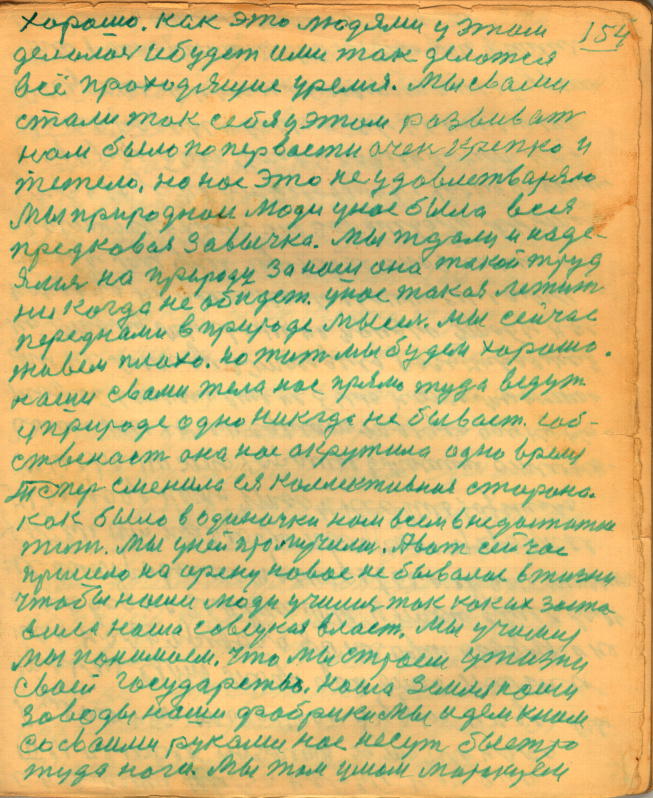 хорошо. как это людями у этом 154
делолос ибудет ими так делотся
всё проходящие уремя. Мы свами
стали так себя у этом развиват
нам было поперваети очен крепко и
тежело, но нас это не удовлетваряло
Мы природнои люди у нас была вся
предковая завычка. Мы ждали и наде-
ялис на природу за наси она такой труд
никогда не обидет. У нас такая лежит
переднами в природе мысыл. Мы сейчас
живем плахо. но жит мы будем хорошо.
наши свами тела нас прямо туда ведут
у природе одно никогда не бывает. соб-
ственаст она нас акрутила одно время
Тепер сменила ся коллективная сторона.
Как было в одиначки нам всем внедостатке
жит. Мы у ней промучилис. Авот сейчас
пришло на арену новое не бывалае в жизни
чтобы наши люди училис так каких заста
вила наша совецкая власт. Мы учимис
Мы понимаем. Что мы строем у жизни
своей государство. Наша земля наши
заводы наши фабрики мы идем кним
со сваими руками нас несут быстро
туда наги. Мы там умом маракуем